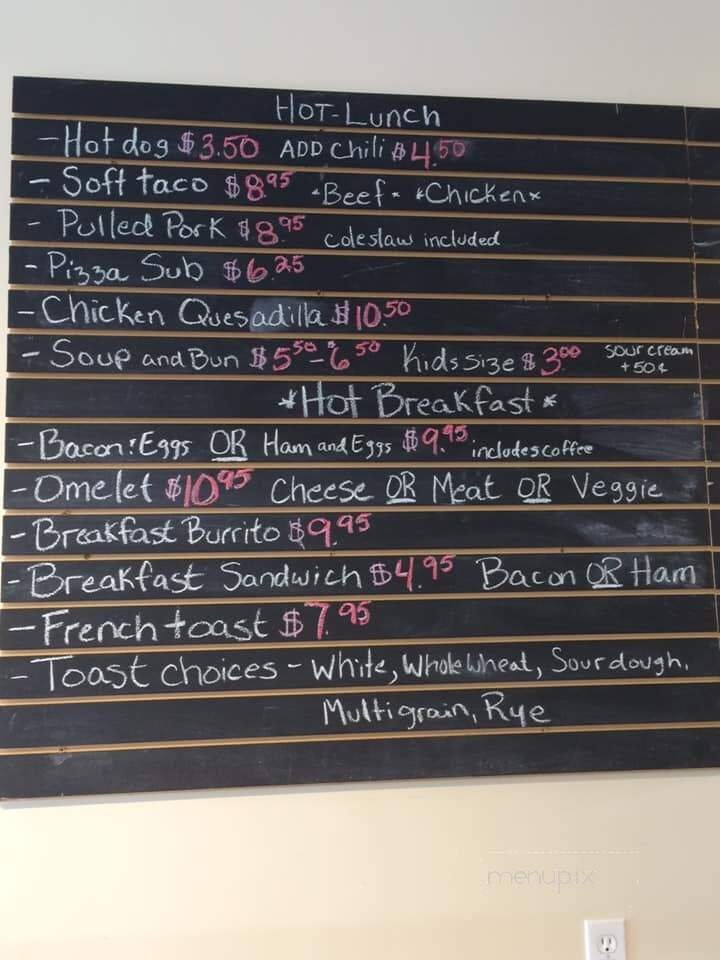 HOT-Lunch
- Hot dog $3.50 ADD Chili $4.50
- Soft taco $8.95 *Beef* *Chicken*
- Pulled Pork $8.95 coleslaw included
- Pizza Sub $6.25
- Chicken Quesadilla $10.50
- Soup and Bun $5.50-6.50 Kids Size $3.00 sour cream +50¢
*Hot Breakfast*
- Bacon & Eggs OR Ham and Eggs $9.95 includes coffee
- Omelet $10.95 Cheese OR Meat OR Veggie
- Breakfast Burrito $9.95
- Breakfast Sandwich $4.95 Bacon OR Ham
- French toast $7.95
- Toast choices - White, Whole Wheat, Sourdough,
Multigrain, Rye
menupix